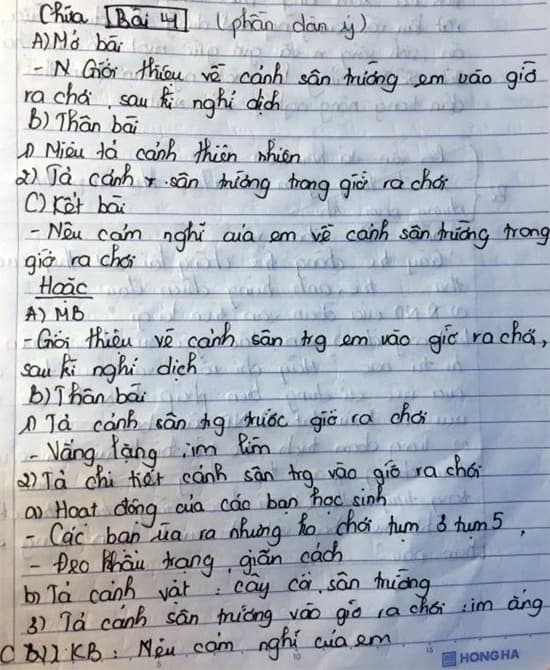 Chữa Bài 4 (phần dàn ý)
A) Mở bài
- N Giới thiệu về cảnh sân trường em vào giờ
ra chơi, sau kì nghỉ dịch
B) Thân bài
1) Miêu tả cảnh thiên nhiên
2) Tả cảnh sân trường trong giờ ra chơi
C) Kết bài
- Nêu cảm nghĩ của em về cảnh sân trường trong
giờ ra chơi
Hoặc
A) MB
- Giới thiệu về cảnh sân trg em vào giờ ra chơi,
sau kì nghỉ dịch
B) Thân bài
1) Tả cảnh sân trg trước giờ ra chơi
- Vắng lặng im lìm
2) Tả chi tiết cảnh sân trg vào giờ ra chơi
a) Hoạt động của các bạn học sinh
- Các bạn ùa ra nhưng ko chơi tụm 3 tụm 5,
- Đeo khẩu trang, giãn cách
b) Tả cảnh vật : cây cối, sân trường
3) Tả cảnh sân trường vào giờ ra chơi : im ắng
C) KB : Nêu cảm nghĩ của em
HONG HA